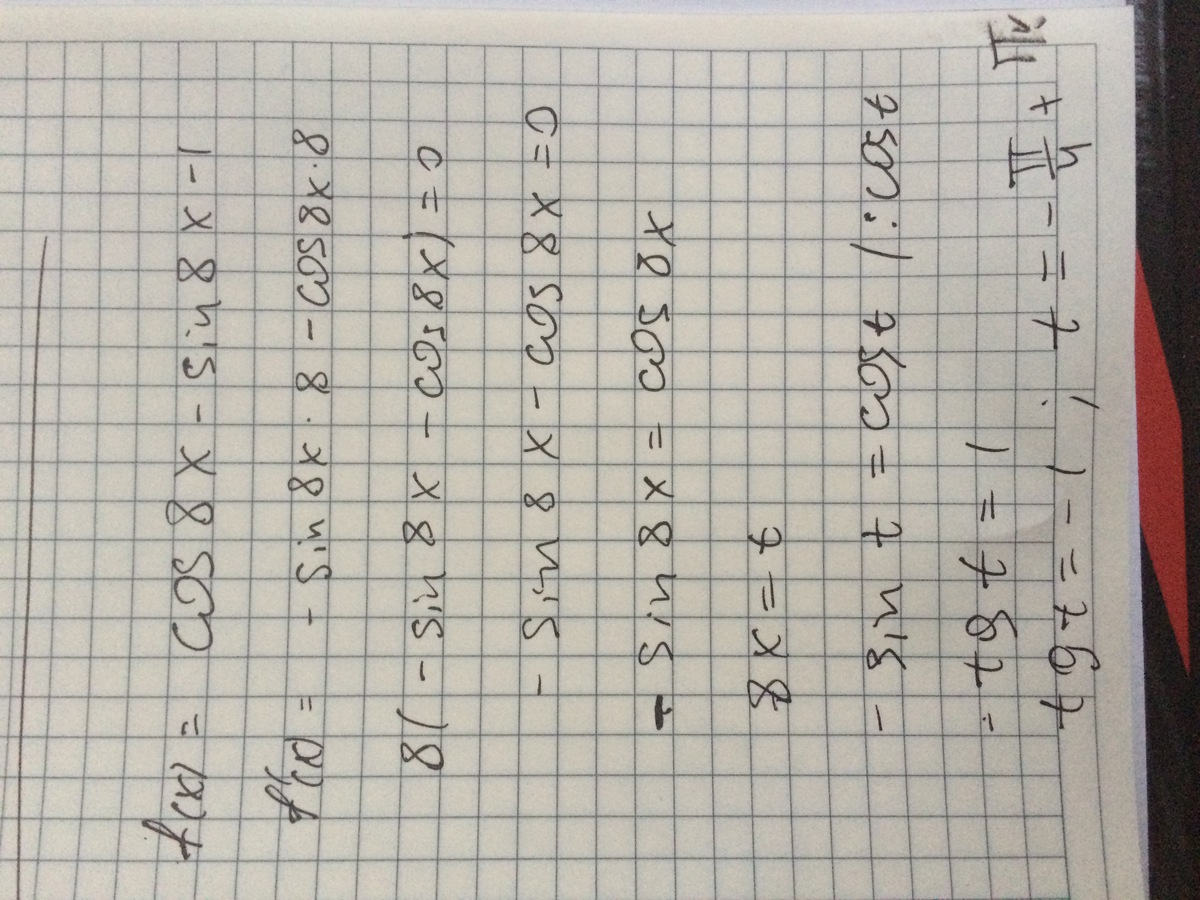 f(x) = cos 8x - sin 8x - 1
f'(x) = - sin 8x · 8 - cos 8x · 8
8(- sin 8x - cos 8x) = 0
- sin 8x - cos 8x = 0
- sin 8x = cos 8x
8x = t
- sin t = cos t / : cos t
- tg t = 1
tg t = -1 ; t = - π/4 + πk